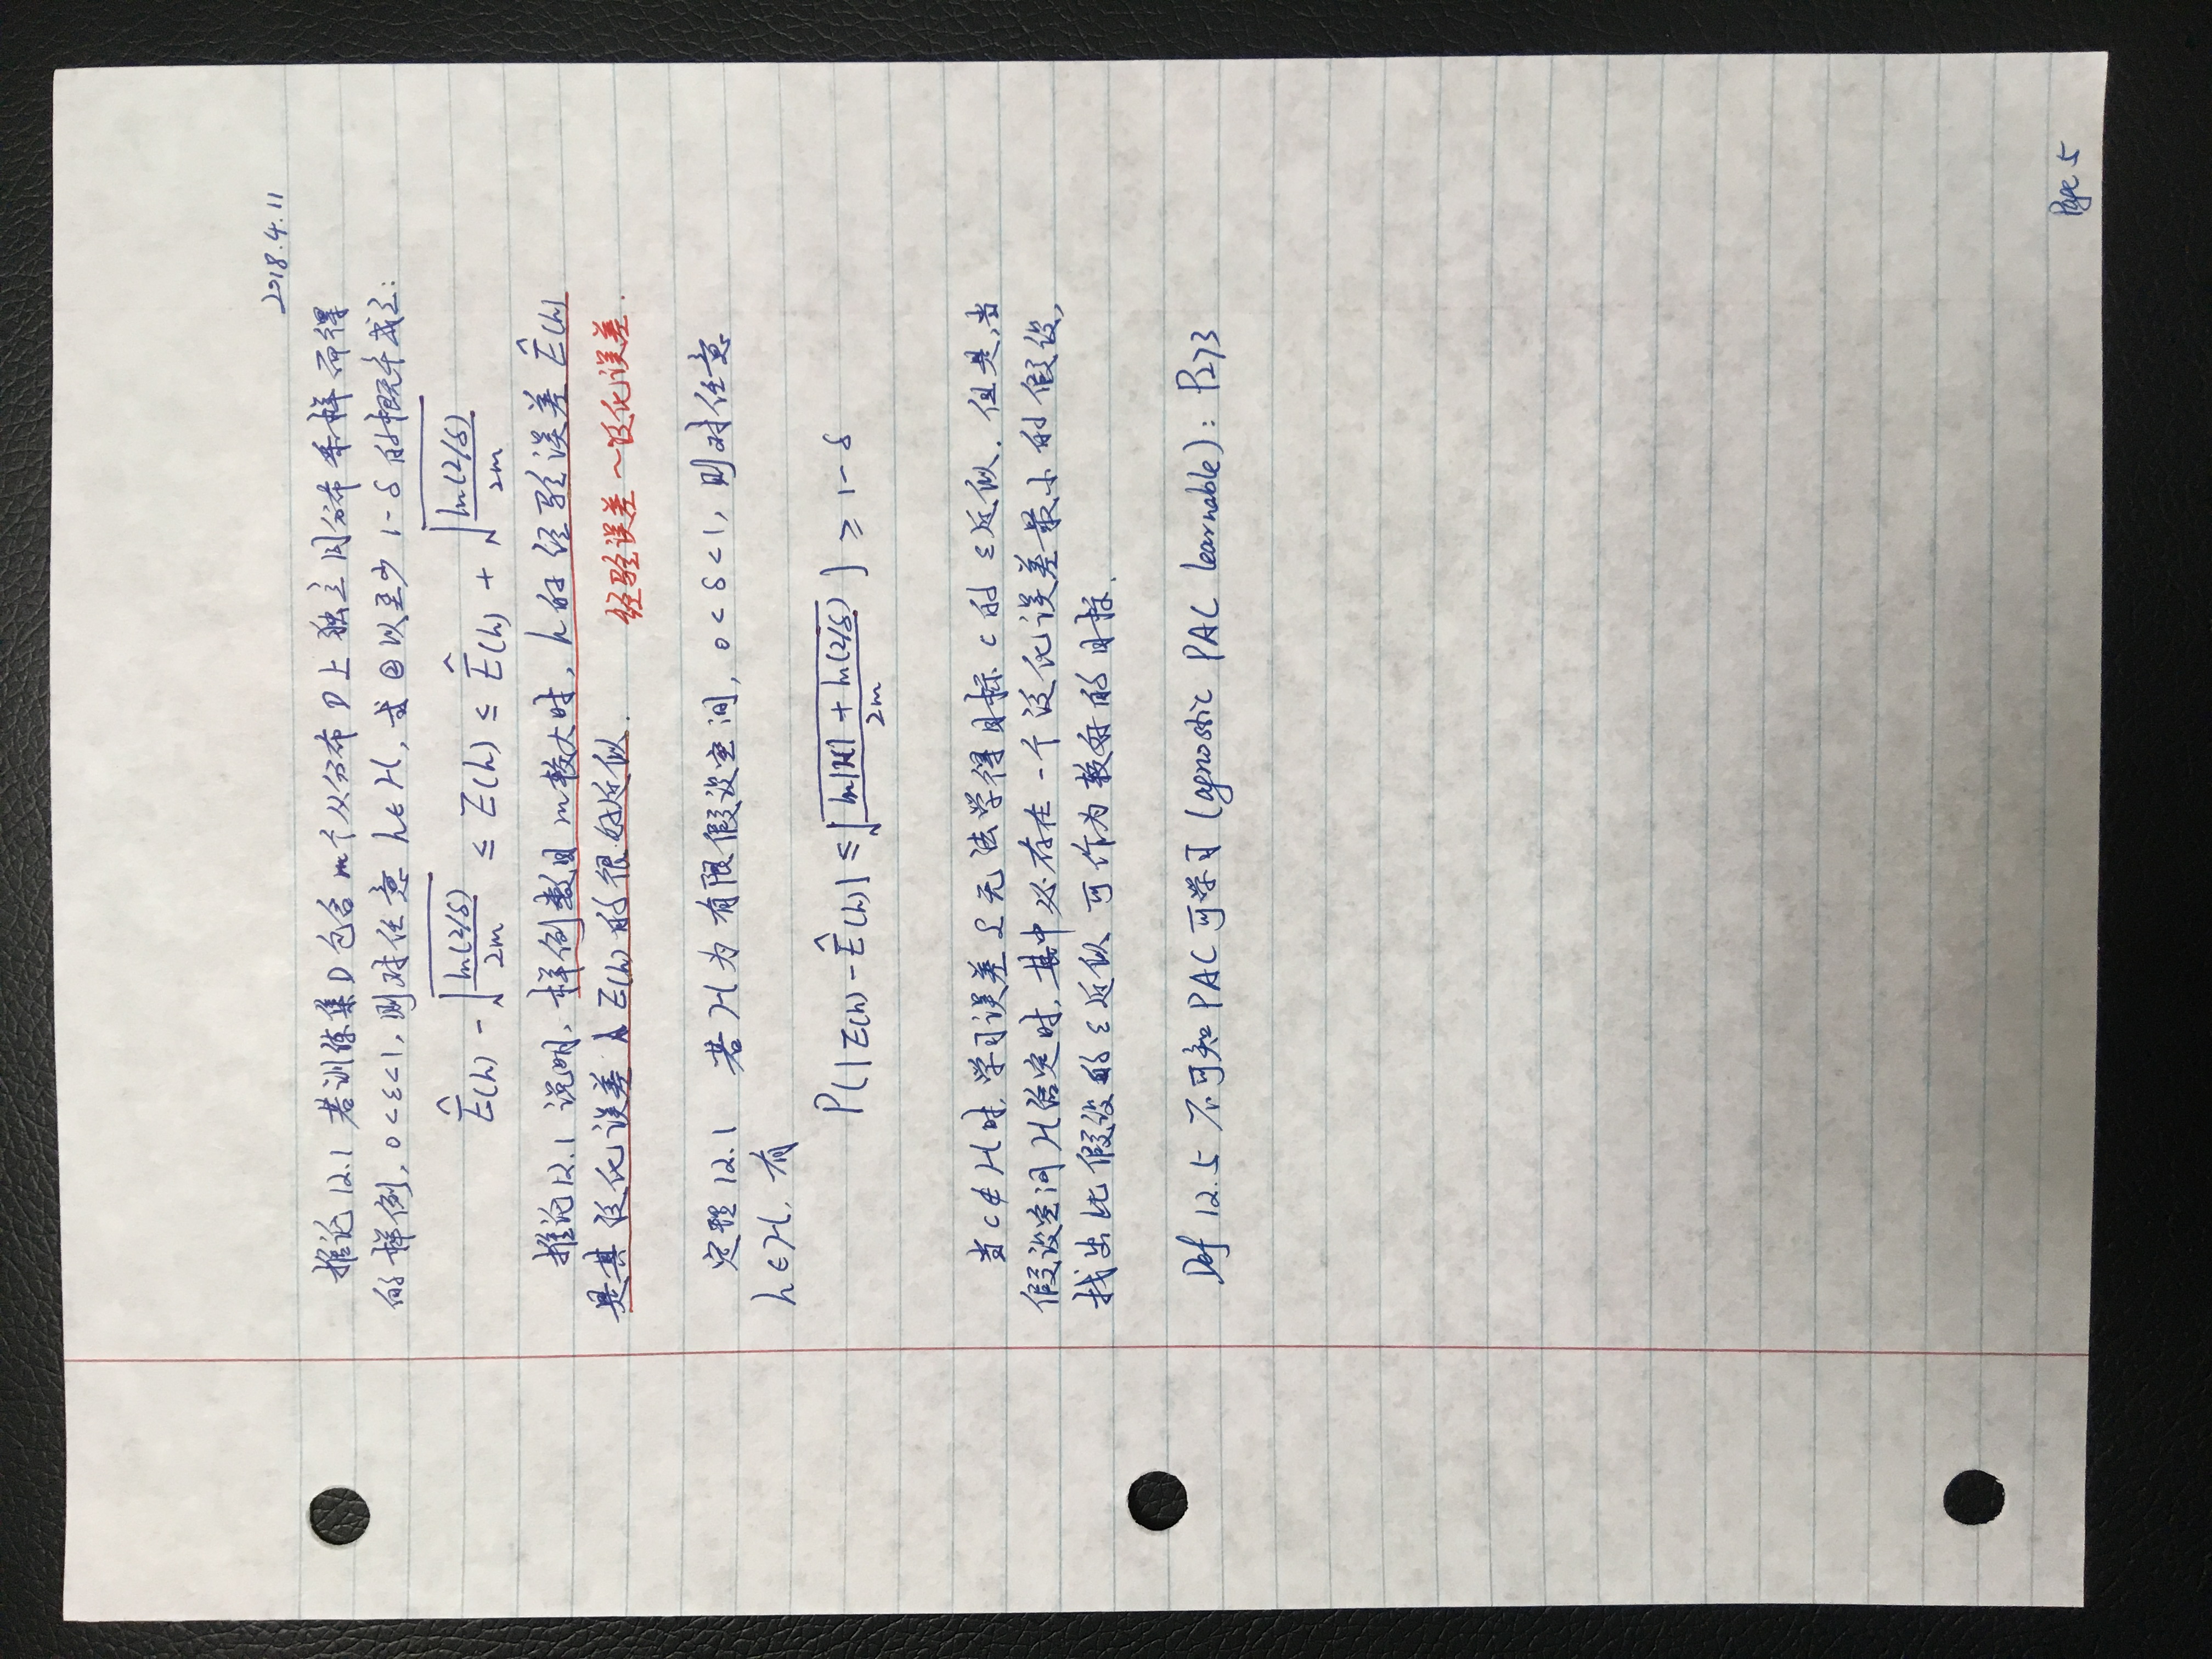 2018.4.11
推论 12.1 若训练集 D 包含 m 个从分布 𝒟 上独立同分布采样而得
的样例, 0<ε<1, 则对任意 h∈ℋ, 式②以至少 1-δ 的概率成立:
Ê(h) - √(ln(2/δ)/2m) ≤ E(h) ≤ Ê(h) + √(ln(2/δ)/2m)
推论12.1 说明, 样例数目 m 较大时, h 的经验误差 Ê(h)
是其泛化误差 E(h) 的很好近似.
经验误差~泛化误差.
定理 12.1 若 ℋ 为有限假设空间, 0<δ<1, 则对任意
h∈ℋ, 有
P(|E(h) - Ê(h)| ≤ √((ln|ℋ| + ln(2/δ))/2m)) ≥ 1-δ
当 c∉ℋ 时, 学习误差 𝔏 无法学得目标 c 的 ε 近似. 但是, 当
假设空间 ℋ 给定时, 其中必存在一个泛化误差最小的假设,
找出此假设的 ε 近似可作为较好的目标.
Def 12.5 不可知 PAC 可学习 (agnostic PAC learnable): P273
Page 5